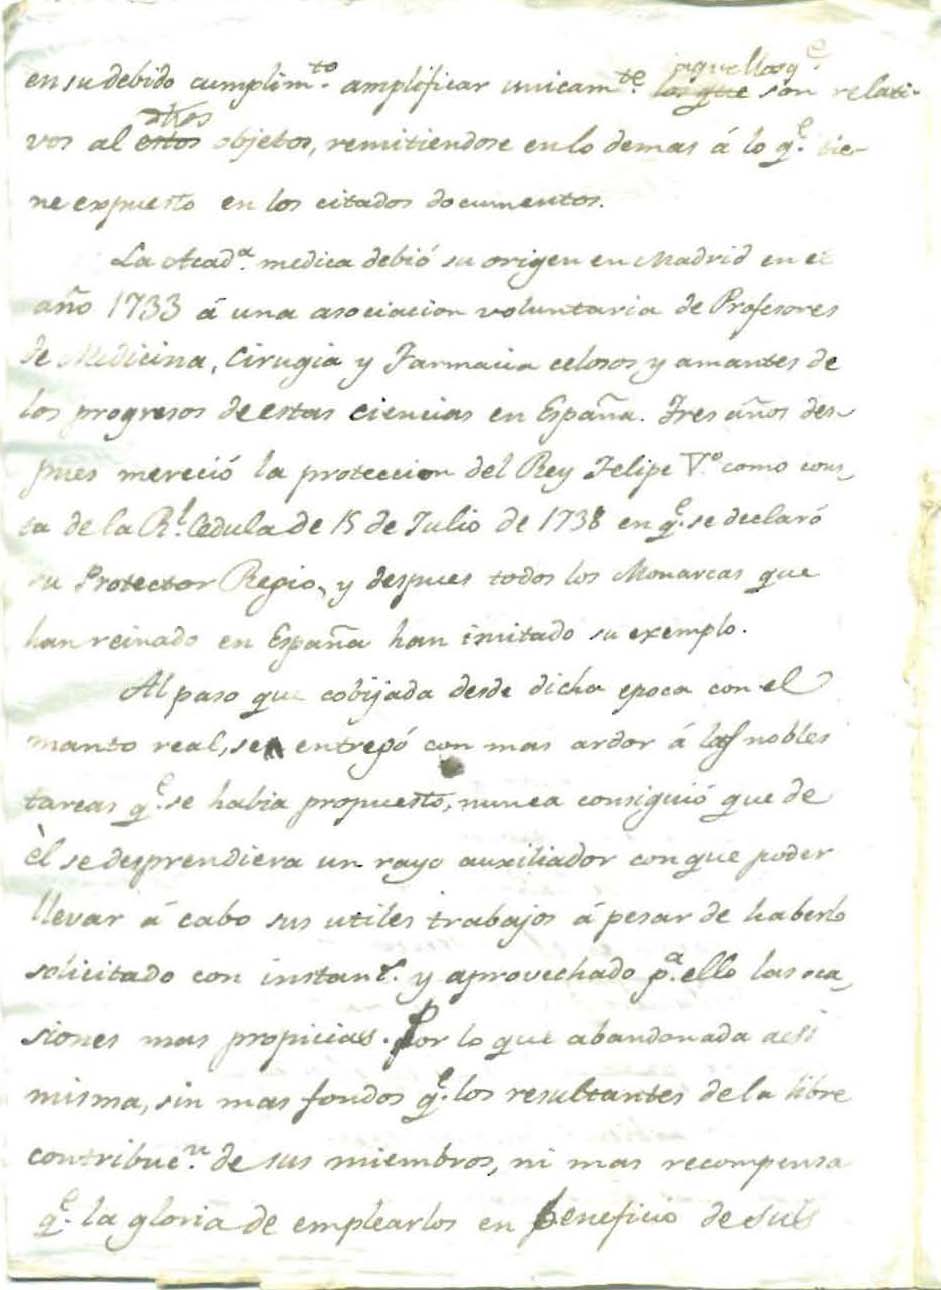 en su debido cumplim.to amplificar unicam.te aquellos q.e los que son relati-
vos al dhos estos objetos, remitiendose en lo demas á lo q.e tie-
ne expuesto en los citados documentos.
La Acad.a medica debió su origen en Madrid en el
año 1733 á una asociacion voluntaria de Profesores
de Medicina, Cirugia y Farmacia celosos y amantes de
los progresos de estas ciencias en España. Tres años des-
pues mereció la proteccion del Rey Felipe V.o como cons-
ta de la R.l Cedula de 15 de Julio de 1738 en q.e se declaró
su Protector Regio, y despues todos los Monarcas que
han reinado en España han imitado su exemplo.
Al paso que cobijada desde dicha epoca con el
manto real, se entregó con mas ardor á las nobles
tareas q.e se habia propuesto, nunca consiguió que de
èl se desprendiera un rayo auxiliador con que poder
llevar á cabo sus utiles trabajos á pesar de haberlo
solicitado con instan.a y aprovechado p.a ello las oca-
siones mas propicias. Por lo que abandonada a si
misma, sin mas fondos q.e los resultantes de la libre
contribuc.n de sus miembros, ni mas recompensa
q.e la gloria de emplearlos en beneficio de sus